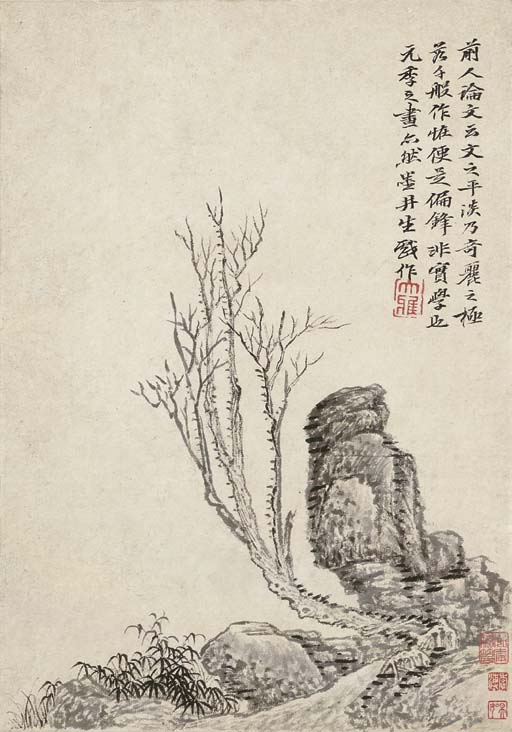 前人論文云文之平淡乃奇麗之極
若千般作怪便是偏鋒非實學也
元季之畫亦然墨井生戲作
大雅